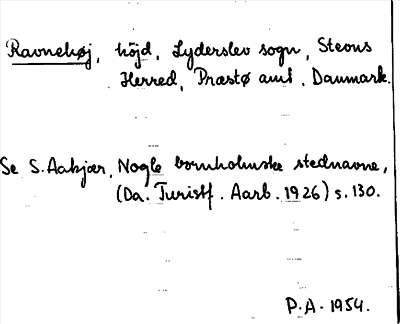 Ravnehøj, höjd, Lyderslev sogn, Stevns
Herred, Præstø amt. Danmark.
Se S. Aakjær, Nogle bornholmske stednavne,
(Da. Turistf. Aarb. 1926) s. 130.
P.A. 1954.